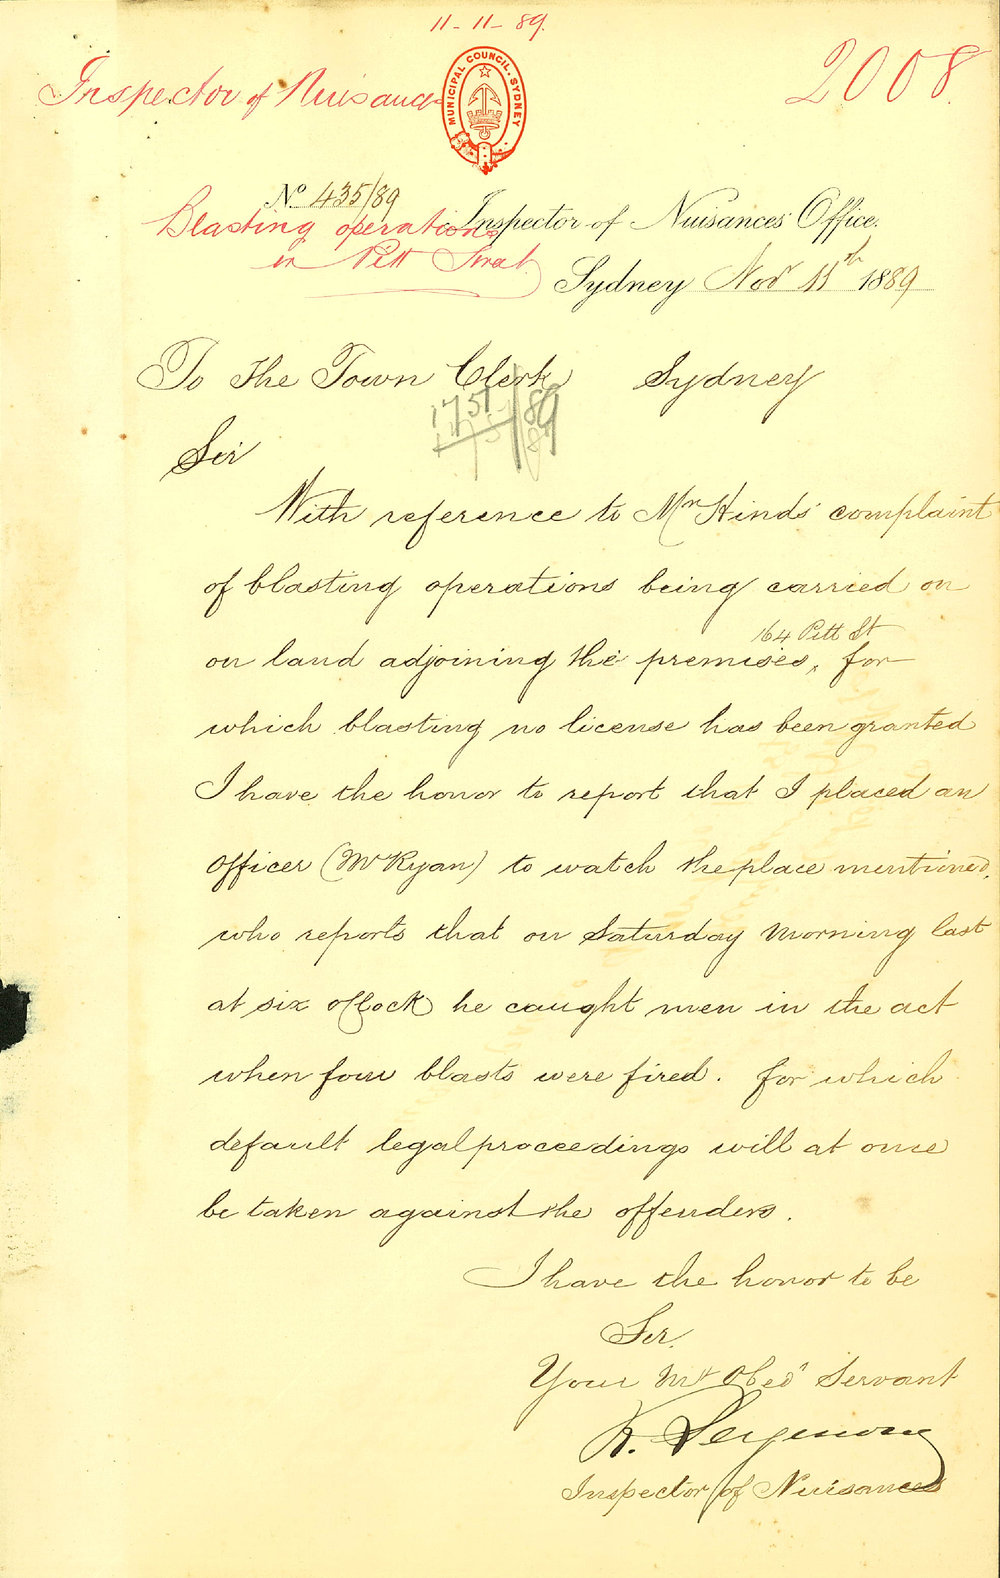 11-11-89.
Inspector of Nuisances
2008.
MUNICIPAL COUNCIL. SYDNEY
No. 435/89
Blasting operations
in Pitt Street
Inspector of Nuisances' Office.
Sydney Novr 11th 1889
To The Town Clerk Sydney
1751/89
Sir
With reference to Mr Hinds' complaint
of blasting operations being carried on
on land adjoining the premises, 164 Pitt St for
which blasting no license has been granted
I have the honor to report that I placed an
Officer (Mr Ryan) to watch the place mentioned.
who reports that on Saturday Morning last
at six o'Clock he caught men in the act
when four blasts were fired. for which
default legal proceedings will at once
be taken against the offenders.
I have the honor to be
Sir.
Your Mt Obedt Servant
R. Seymour
Inspector of Nuisances